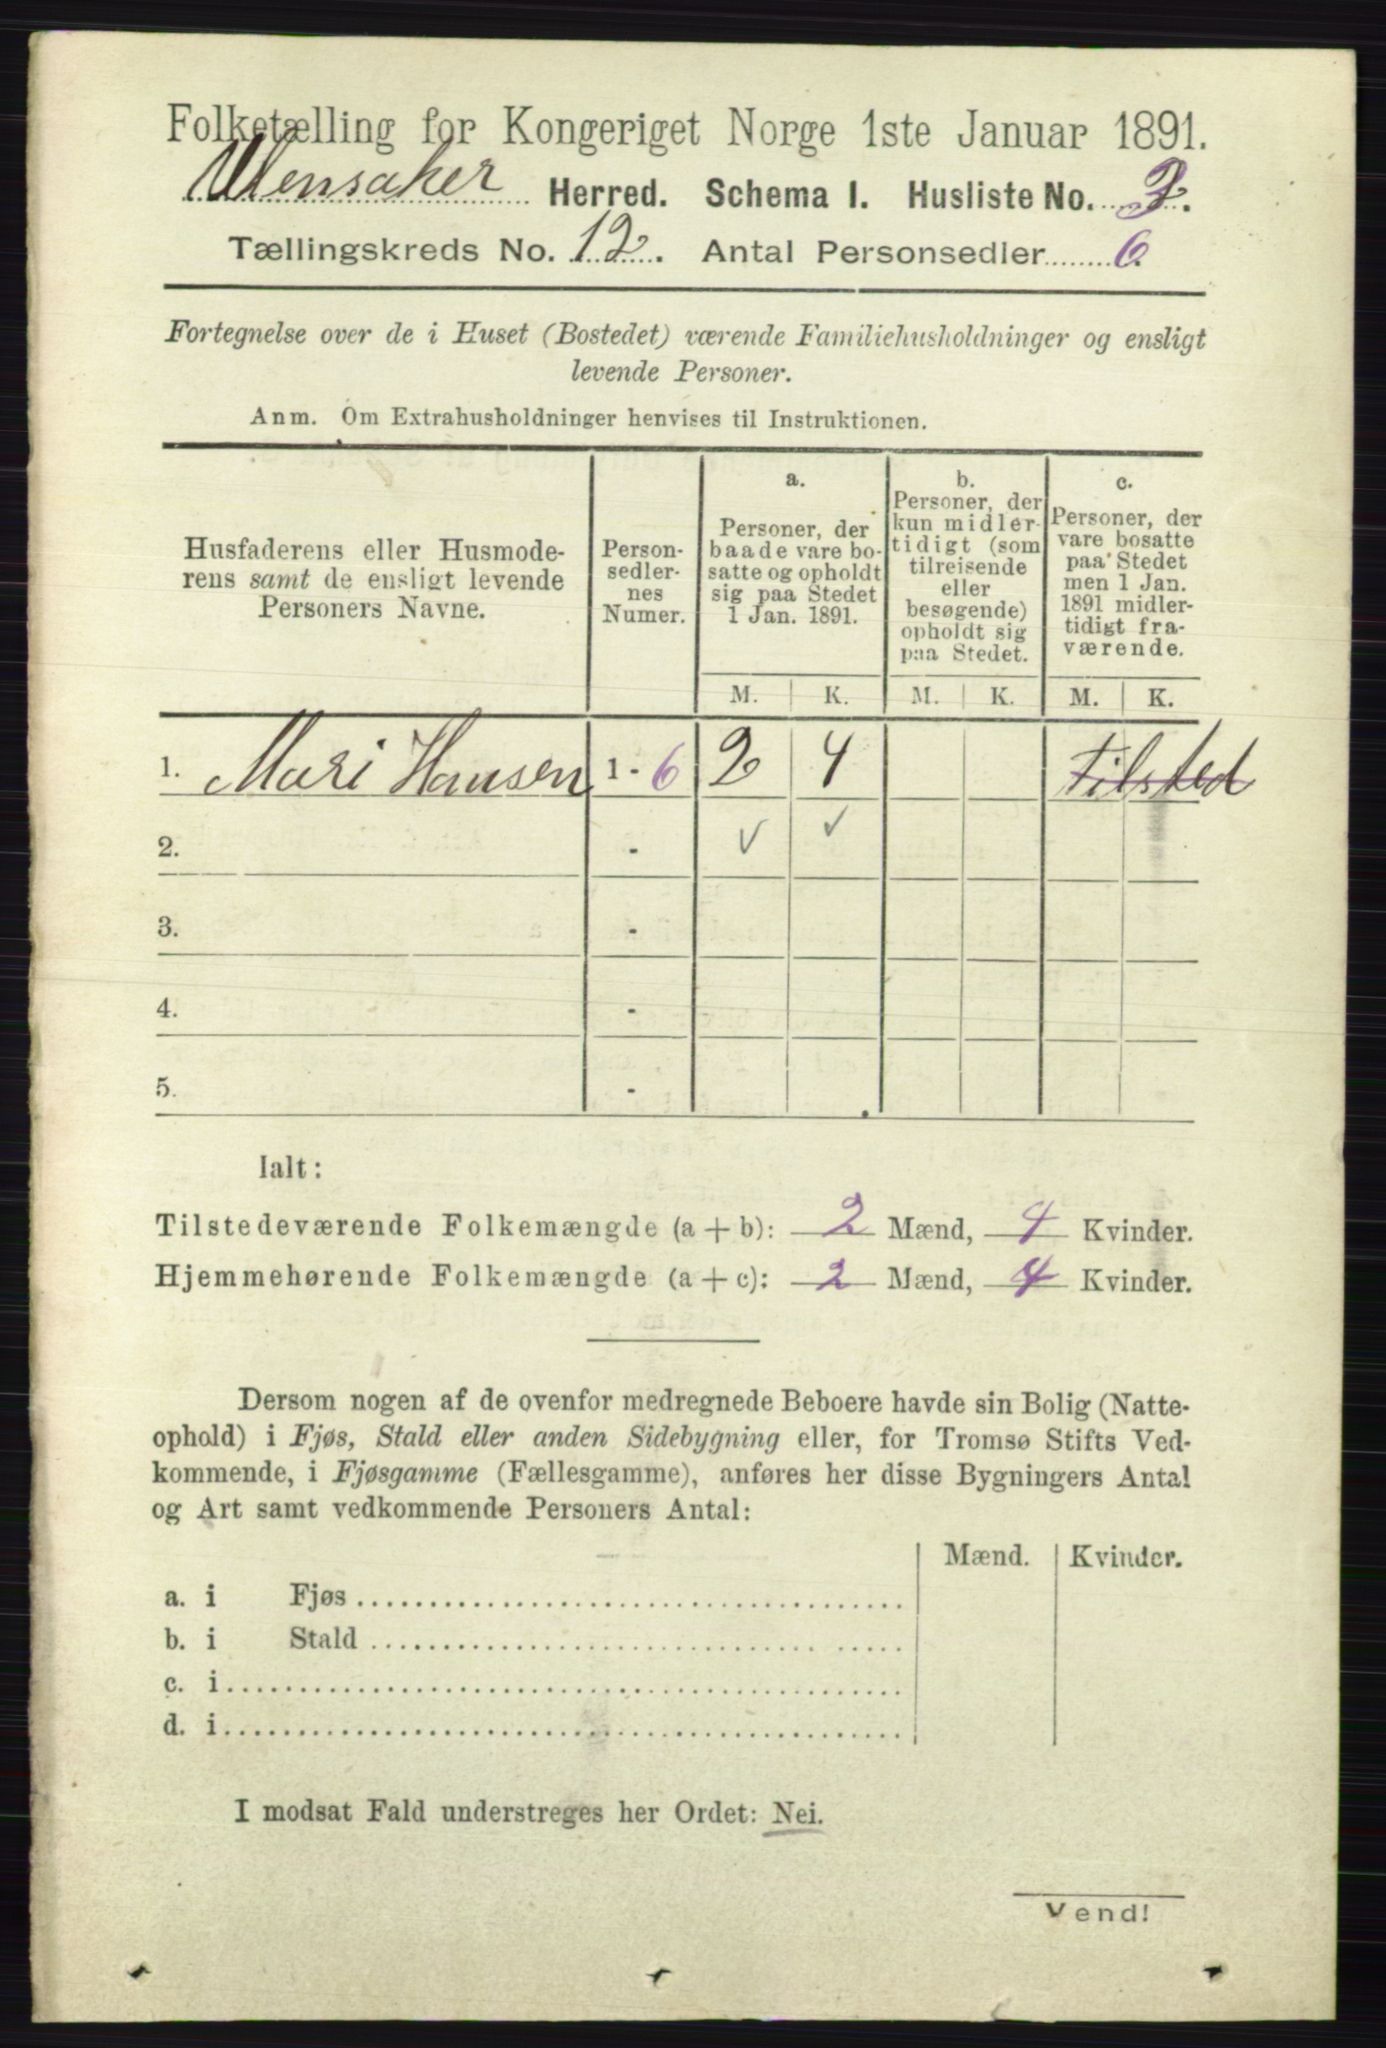 Folketælling for Kongeriget Norge 1ste Januar 1891.
Ullensaker Herred. Schema I. Husliste No. 2.
Tællingskreds No. 12. Antal Personsedler 6.
Fortegnelse over de i Huset (Bostedet) værende Familiehusholdninger og ensligt
levende Personer.
Anm. Om Extrahusholdninger henvises til Instruktionen.
Husfaderens eller Husmode-
rens samt de ensligt levende
Personers Navne.
Person-
sedler-
nes
Numer.
a.
Personer, der
baade vare bo-
satte og opholdt
sig paa Stedet
1 Jan. 1891.
b.
Personer, der
kun midler-
tidigt (som
tilreisende
eller
besøgende)
opholdt sig
paa Stedet.
c.
Personer, der
vare bosatte
paa Stedet
men 1 Jan.
1891 midler-
tidigt fra-
værende.
M. K. M. K. M. K.
1. Mari Hansen 1 - 6 2 4 tilsted
2. - ✓ ✓
3. -
4. -
5. -
Ialt:
Tilstedeværende Folkemængde (a + b): 2 Mænd, 4 Kvinder.
Hjemmehørende Folkemængde (a + c): 2 Mænd, 4 Kvinder.
Dersom nogen af de ovenfor medregnede Beboere havde sin Bolig (Natte-
ophold) i Fjøs, Stald eller anden Sidebygning eller, for Tromsø Stifts Ved-
kommende, i Fjøsgamme (Fællesgamme), anføres her disse Bygningers Antal
og Art samt vedkommende Personers Antal:
Mænd. Kvinder.
a. i Fjøs
b. i Stald
c. i
d. i
I modsat Fald understreges her Ordet: Nei.
Vend!